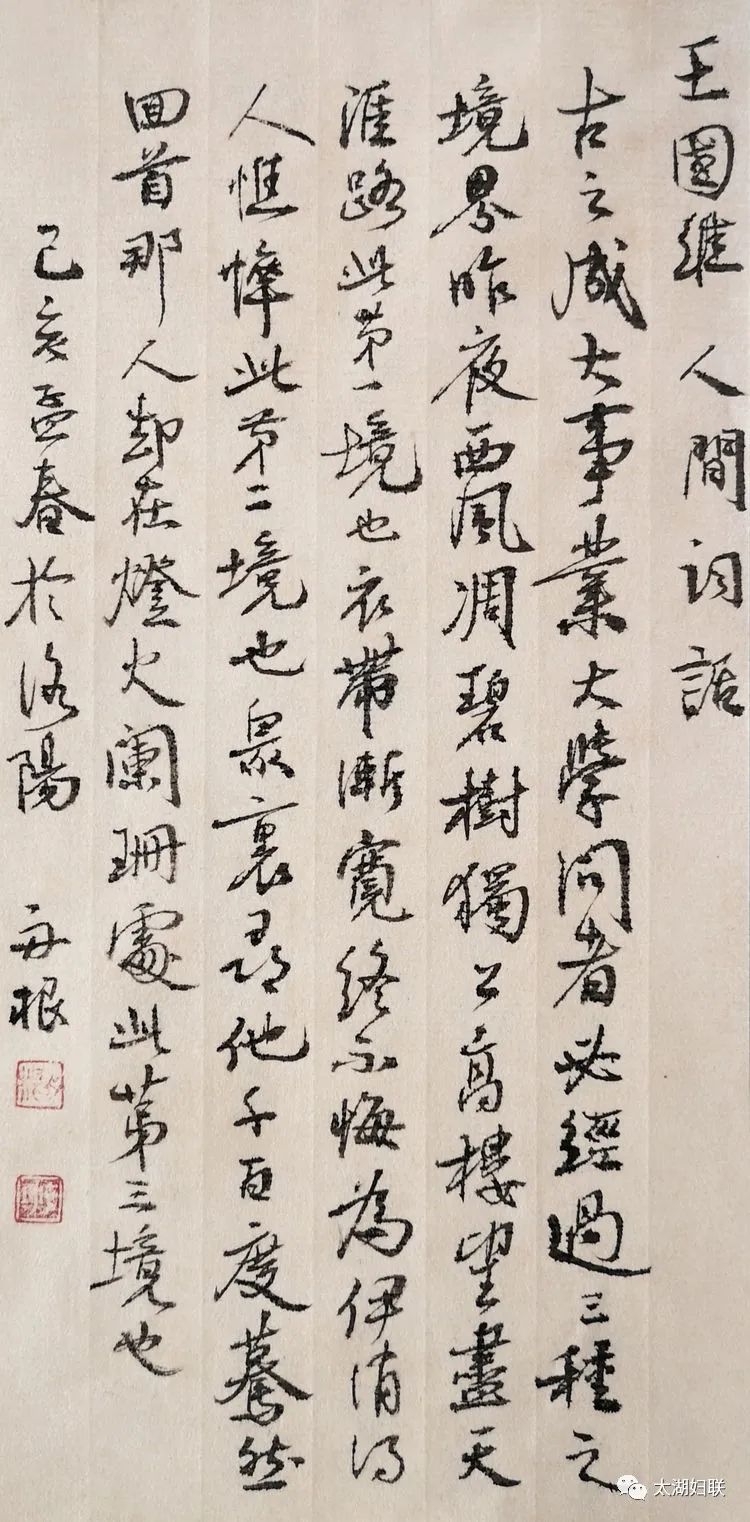 王國維 人間詞話
古之成大事業大學問者必經過三種之
境界昨夜西風凋碧樹獨上高樓望盡天
涯路此第一境也衣帶漸寬終不悔為伊消得
人憔悴此第二境也眾裏尋他千百度驀然
回首那人却在燈火闌珊處此第三境也
己亥孟春於洛陽 根
太湖妇联